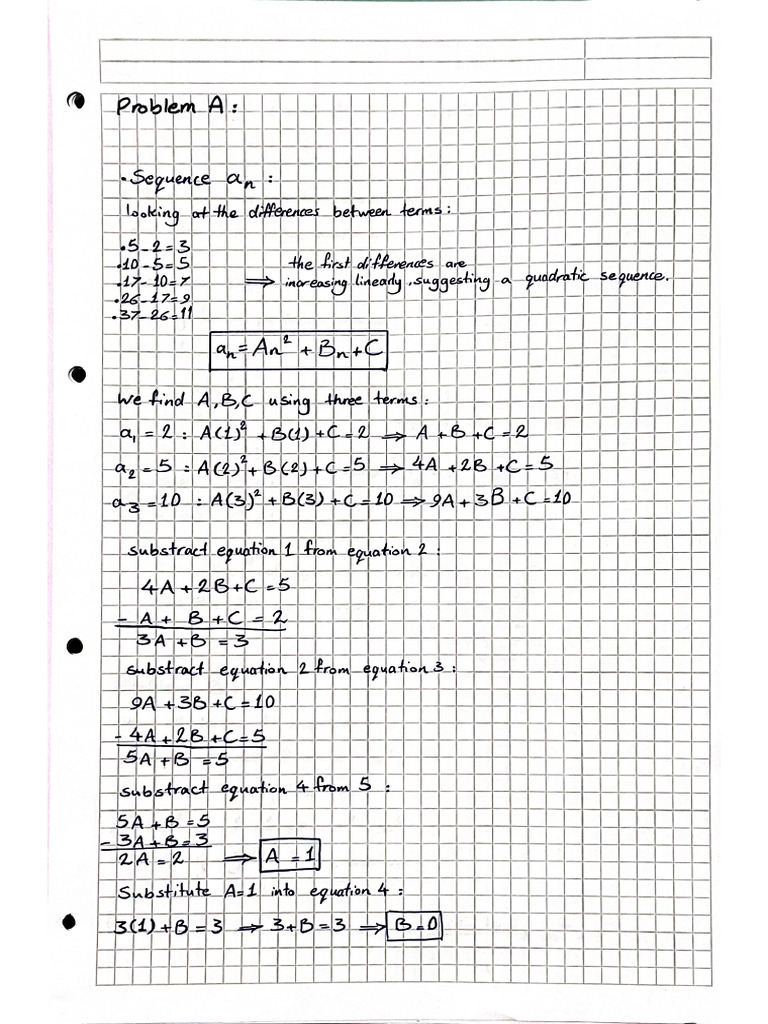 Problem A:
• Sequence aₙ :
looking at the differences between terms:
• 5 - 2 = 3
• 10 - 5 = 5
• 17 - 10 = 7
• 26 - 17 = 9
• 37 - 26 = 11
the first differences are
⇒ increasing linearly, suggesting a quadratic sequence.
aₙ = An² + Bn + C
We find A, B, C using three terms:
a₁ = 2 : A(1)² + B(1) + C = 2 ⇒ A + B + C = 2
a₂ = 5 : A(2)² + B(2) + C = 5 ⇒ 4A + 2B + C = 5
a₃ = 10 : A(3)² + B(3) + C = 10 ⇒ 9A + 3B + C = 10
substract equation 1 from equation 2:
4A + 2B + C = 5
- A + B + C = 2
3A + B = 3
substract equation 2 from equation 3:
9A + 3B + C = 10
- 4A + 2B + C = 5
5A + B = 5
substract equation 4 from 5 :
5A + B = 5
- 3A + B = 3
2A = 2 ⇒ A = 1
Substitute A=1 into equation 4 :
3(1) + B = 3 ⇒ 3 + B = 3 ⇒ B = 0